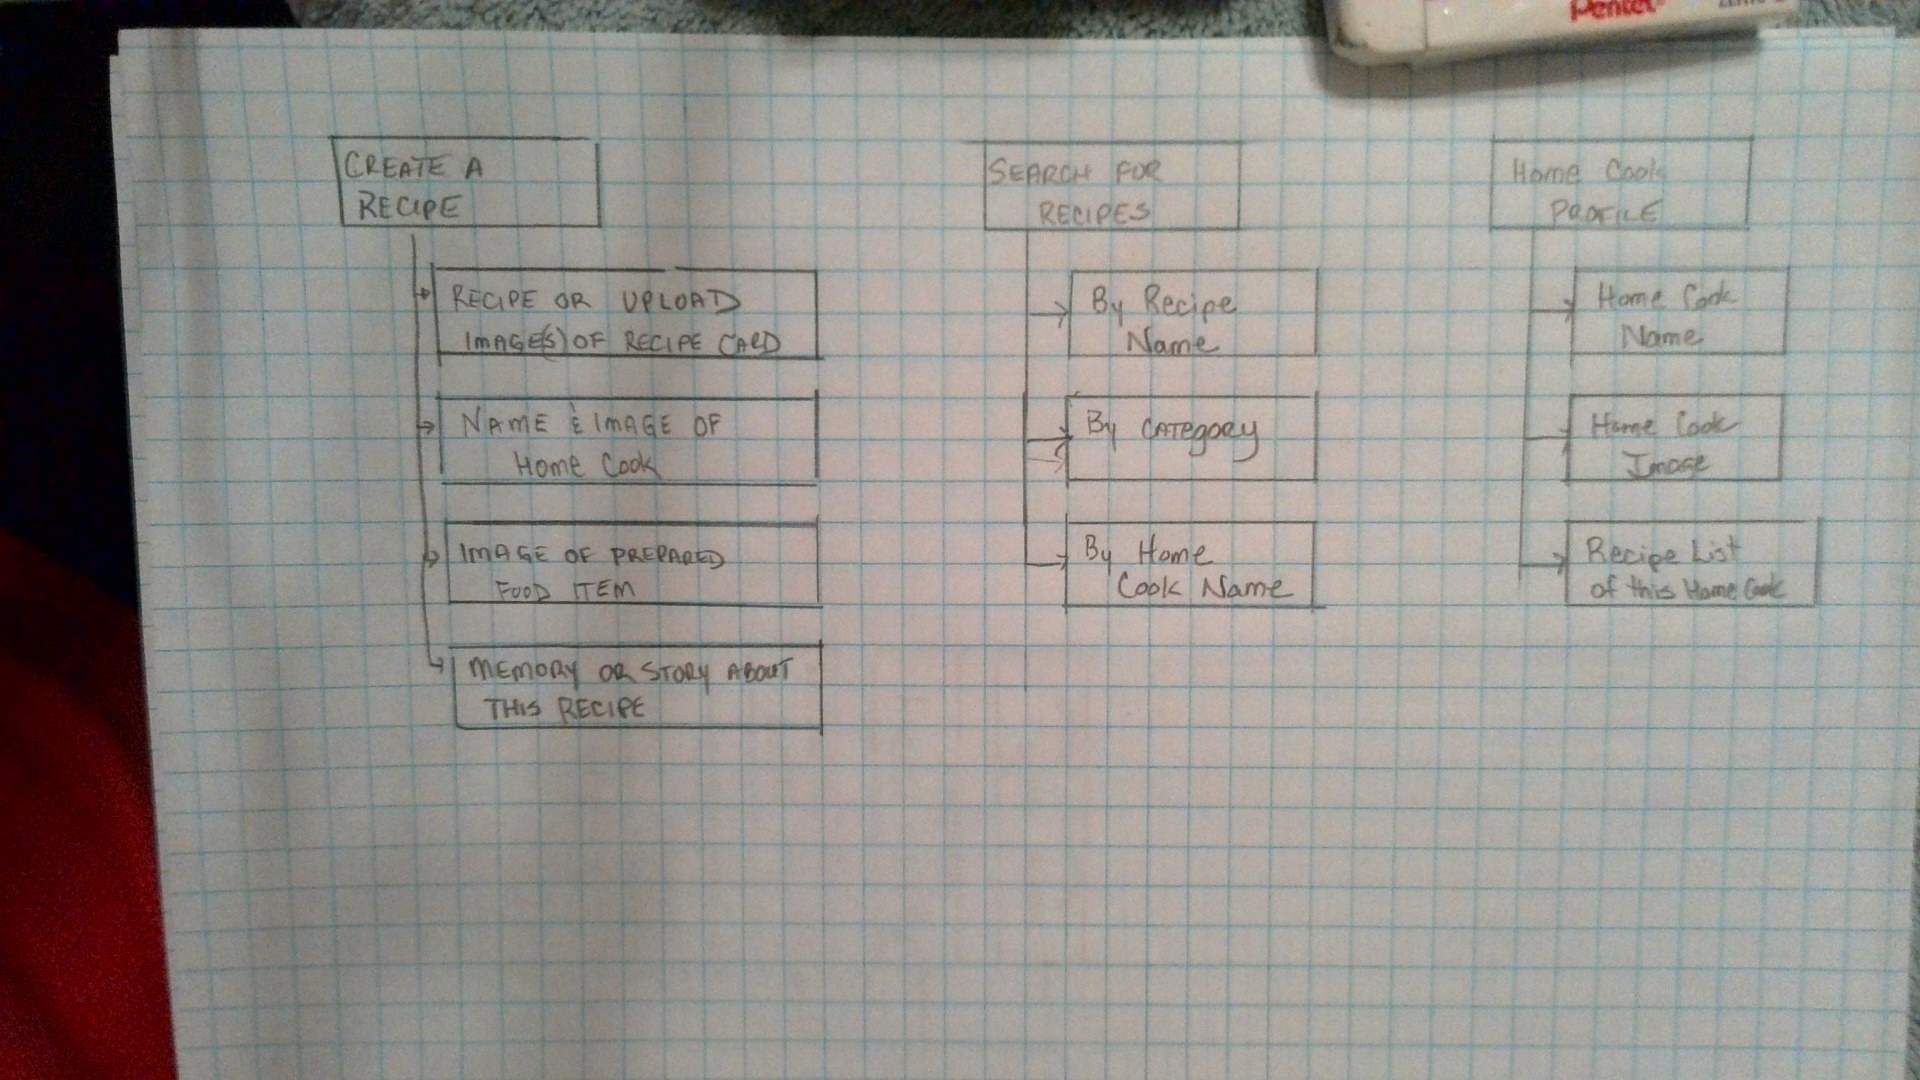 Pentel
CREATE A
RECIPE
RECIPE OR UPLOAD
IMAGE(S) OF RECIPE CARD
NAME & IMAGE OF
Home Cook
IMAGE OF PREPARED
FOOD ITEM
MEMORY OR STORY ABOUT
THIS RECIPE
SEARCH FOR
RECIPES
By Recipe
Name
By CATEGORY
By Home
Cook Name
Home Cook
PROFILE
Home Cook
Name
Home Cook
Image
Recipe List
of this Home Cook